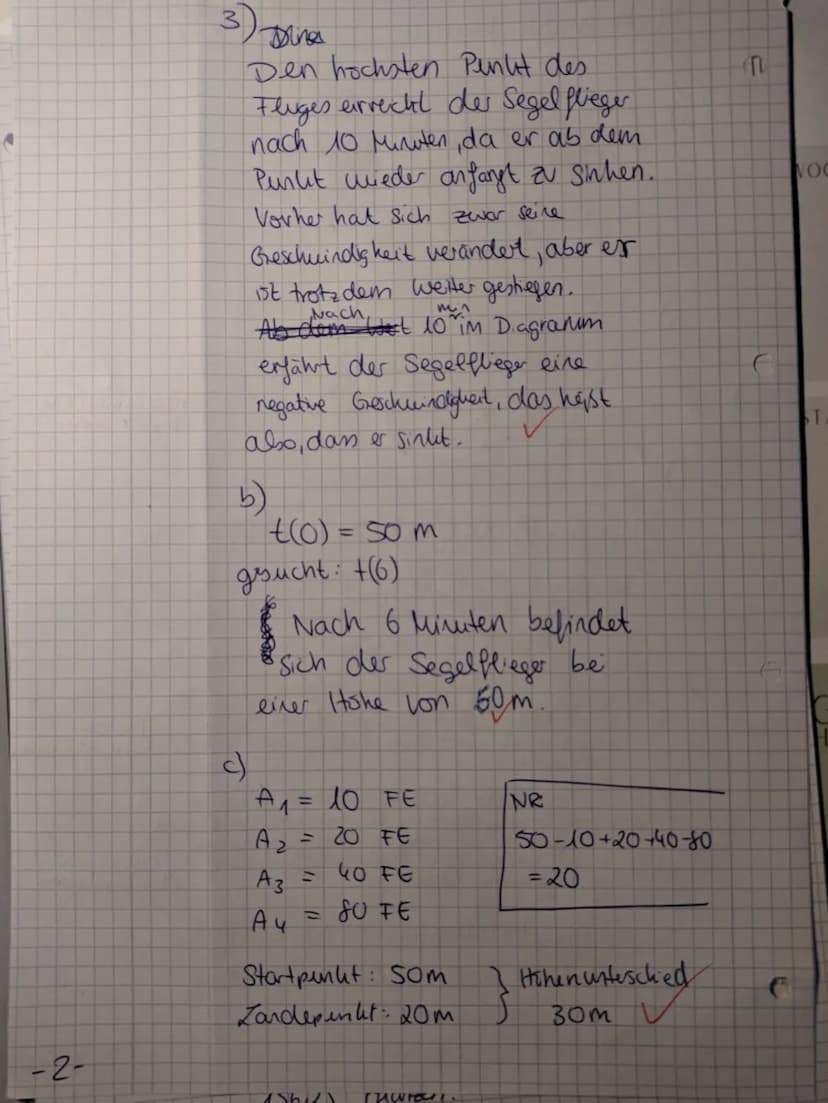 3)
Den höchsten Punkt des
Fluges erreicht der Segelflieger
nach 10 Minuten, da er ab dem
Punkt wieder anfängt zu sinken.
Vorher hat sich zwar seine
Geschwindigkeit verändert, aber er
ist trotzdem weiter gestiegen.
Nach 10 min im Diagramm
erfährt der Segelflieger eine
negative Geschwindigkeit, das heißt
also, dass er sinkt.
b)
t(0) = 50 m
gesucht: t(6)
Nach 6 Minuten befindet
sich der Segelflieger bei
einer Höhe von 60 m.
c)
A1 = 10 FE
A2 = 20 FE
A3 = 40 FE
A4 = 80 FE
NR
50-10+20+40-80
= 20
Startpunkt: 50m } Höhenunterschied
Landepunkt: 20m 30m
-2-